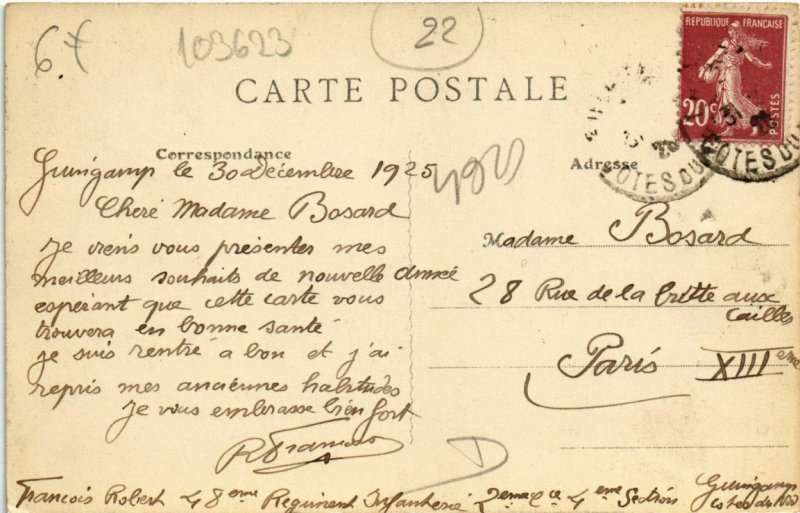 6.f
103623
22
CARTE POSTALE
REPUBLIQUE FRANÇAISE
20c
POSTES
COTES DU
COTES DU
Correspondance
Adresse
Guingamp le 30 Décembre 1925
Cheré Madame Bosard
Je viens vous présenter mes
meilleurs souhaits de nouvelle année
espérant que cette carte vous
trouvera en bonne santé
je suis rentré a bon et j'ai
repris mes anciénnes habitudes
Je vous embrasse bien fort
R François
Madame Bosard
28 Rue de la butte aux
Cailles
Paris XIII eme
François Robert 48 eme Regiment Infanterie 2eme Cie 4 eme Section Guingamp
Cotes du Nord